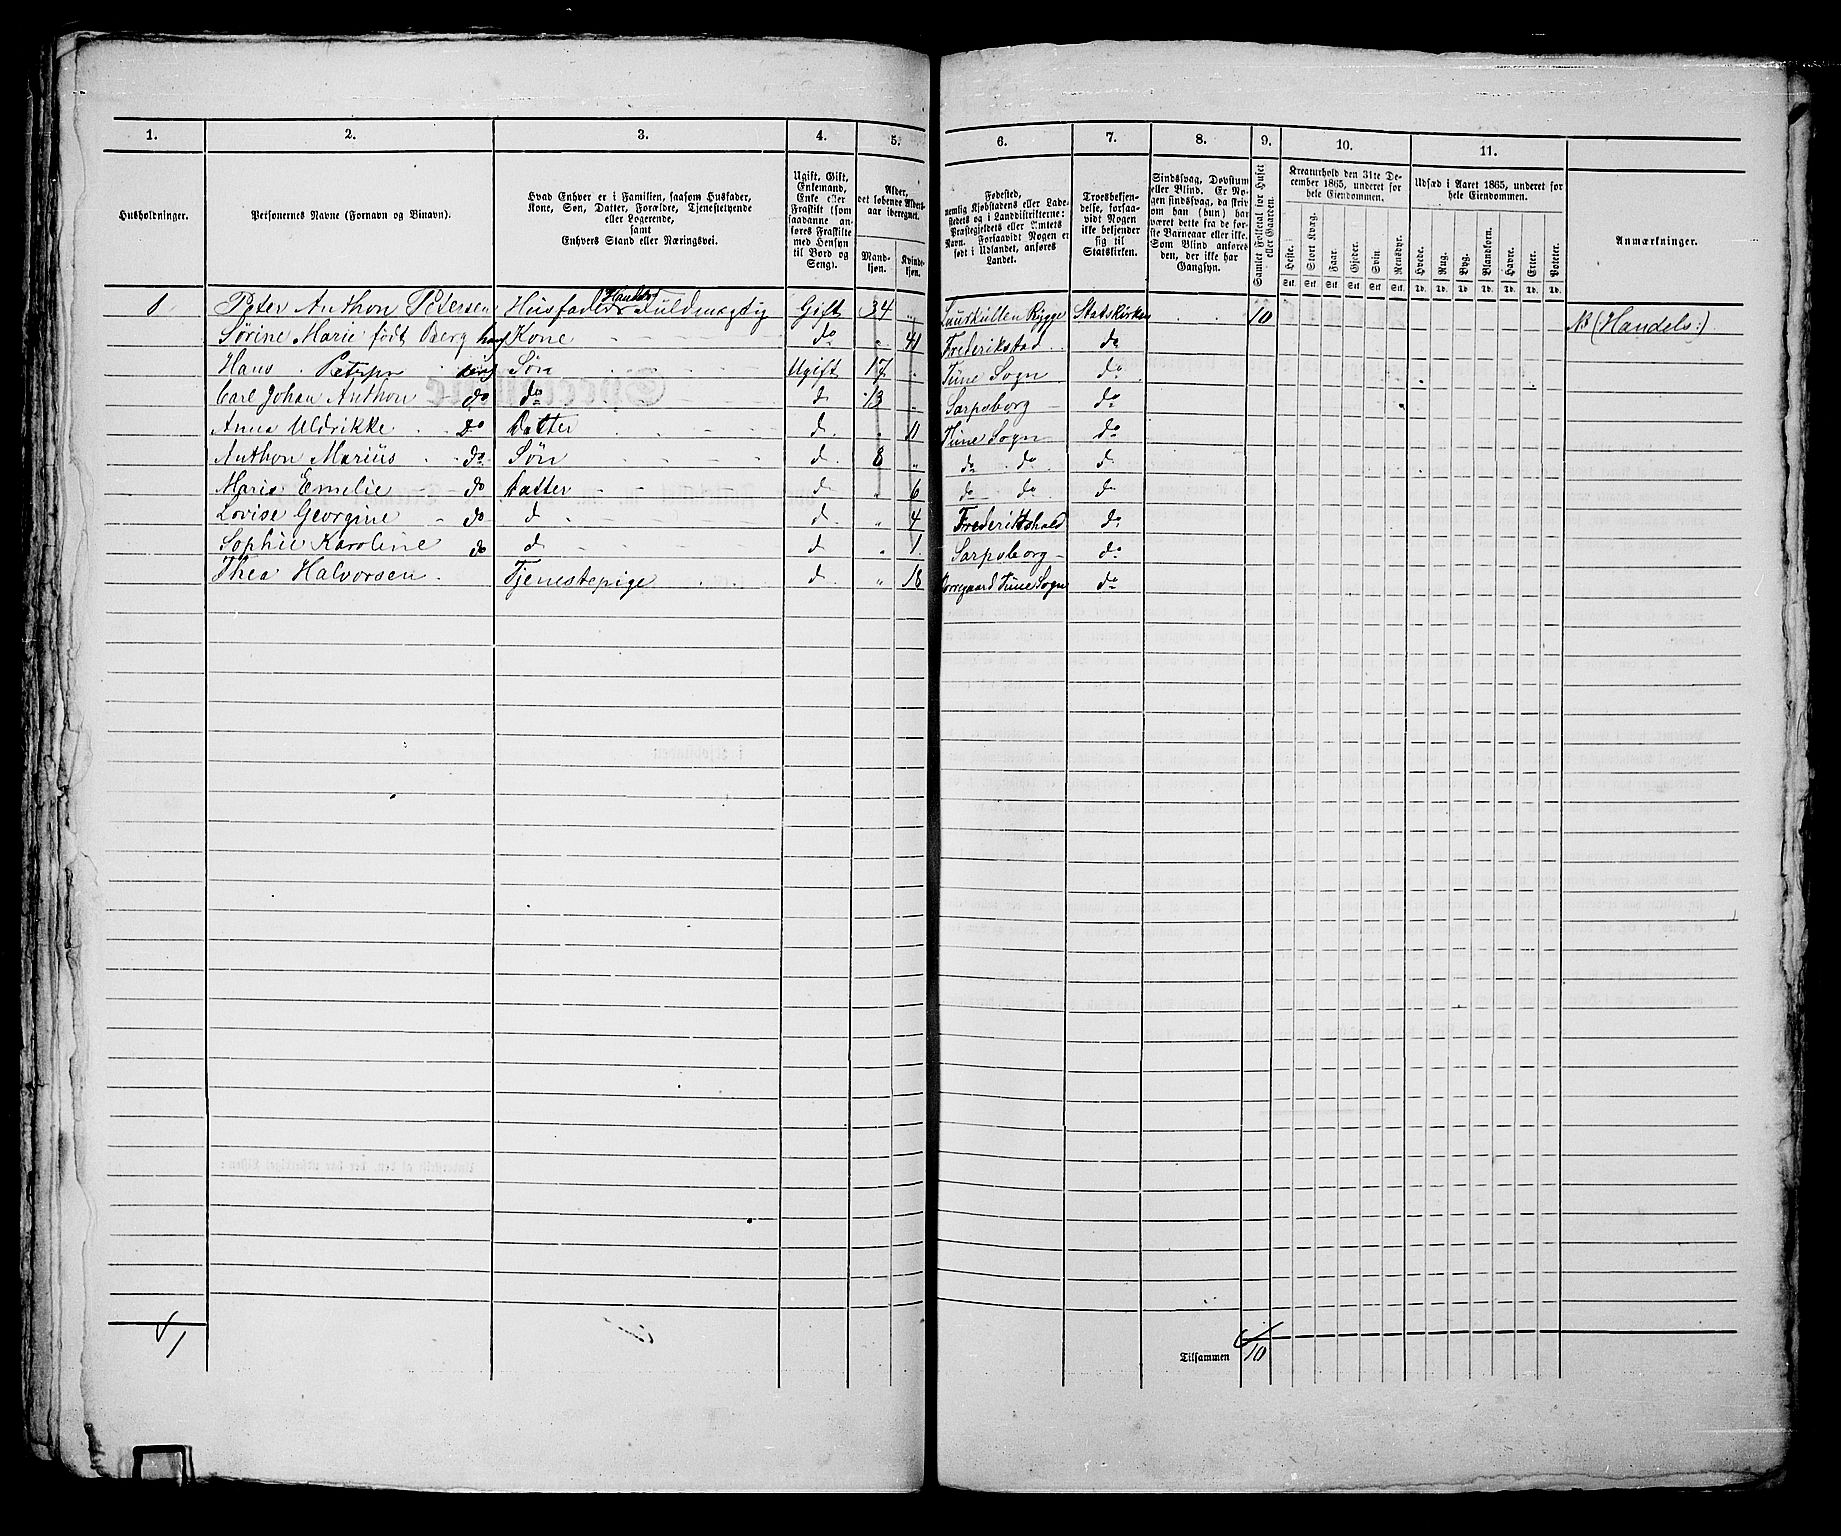 1. 2. 3. 4. 5. 6. 7. 8. 9. 10. 11.
Husholdninger.
Personernes Navne (Fornavn og Binavn).
Hvad Enhver er i Familien, saasom Husfader,
Kone, Søn, Datter, Forældre, Tjenestetyende
eller Logerende,
samt
Enhvers Stand eller Næringsvei.
Ugift, Gift,
Enkemand,
Enke eller
Fraskilt (som
saadanne an-
føres Fraskilte
med Hensyn
til Bord og
Seng).
Alder,
det løbende Alders-
aar iberegnet.
Mand-
kjøn.
Kvinde-
kjøn.
Fødested,
nemlig Kjøbstadens eller Lade-
stedets og i Landdistrikterne:
Præstegjeldets eller Amtets
Navn. Forsaavidt Nogen er
født i Udlandet, anføres
Landet.
Troesbekjen-
delse, forsaa-
vidt Nogen
ikke bekjender
sig til
Statskirken.
Sindssvag, Døvstum
eller Blind. Er No-
gen sindssvag, da skriv
om han (hun) har
været dette fra de før-
ste Barneaar eller ikke.
Som Blind anføres
den, der ikke har
Gangsyn.
Samlet Folketal for Huset
eller Gaarden.
Kreaturhold den 31te De-
cember 1865, underet for
hele Eiendommen.
Heste. Stort Kvæg. Faar. Gjeder. Svin. Rensdyr.
Stk. Stk. Stk. Stk. Stk. Stk.
Udsæd i Aaret 1865, underet for
hele Eiendommen.
Hvede. Rug. Byg. Blandkorn. Havre. Erter. Poteter.
Td. Td. Td. Td. Td. Td. Td.
Anmærkninger.
Handels
Peter Anthon Petersen Husfader Fuldmægtig Gift 34 „ Laurkullen Rygge Statskirken 10 NB (Handels:)
Sørine Marie født Berg hans Kone do „ 41 Frederikstad do
Hans Petersen Søn Ugift 17 „ Tune Sogn do
Carl Johan Anthon do do d 13 „ Sarpsborg do
Anna Uldrikke do Datter d „ 11 Tune Sogn do
Anthon Marius do Søn d 8 „ do do d
Marie Emelie do Datter d „ 6 do do d
Lovise Georgine do d d „ 4 Frederikshald do
Sophie Karoline do d d „ 1 Sarpsborg do
Thea Halvorsen Tjenestepige d „ 18 Tune Sogn do
1
Tilsammen 10